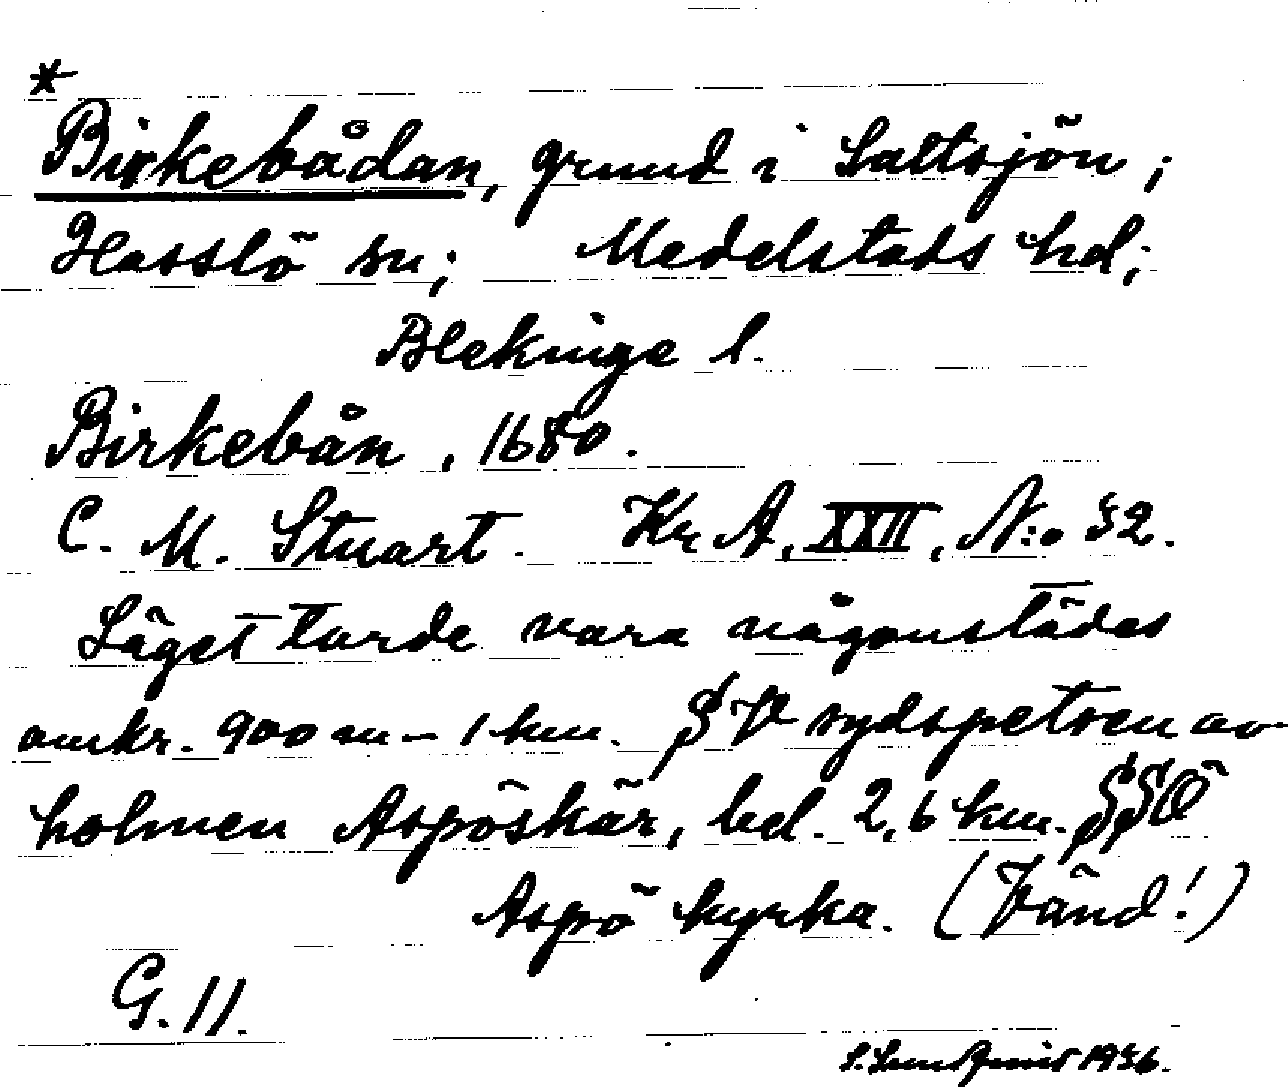 *
Birkebådan, grund i Saltsjön;
Hasslö sn; Medelstads hd;
Blekinge l.
Birkebån, 1680.
C. M. Stuart. Kr A, XXII, N:o 32.
Läget torde vara någonstädes
omkr. 900 m – 1 km. SV sydspetsen av
holmen Aspöskär, bel. 2,6 km. SSÖ
Aspö kyrka. (Vänd!)
G. 11.
1936.